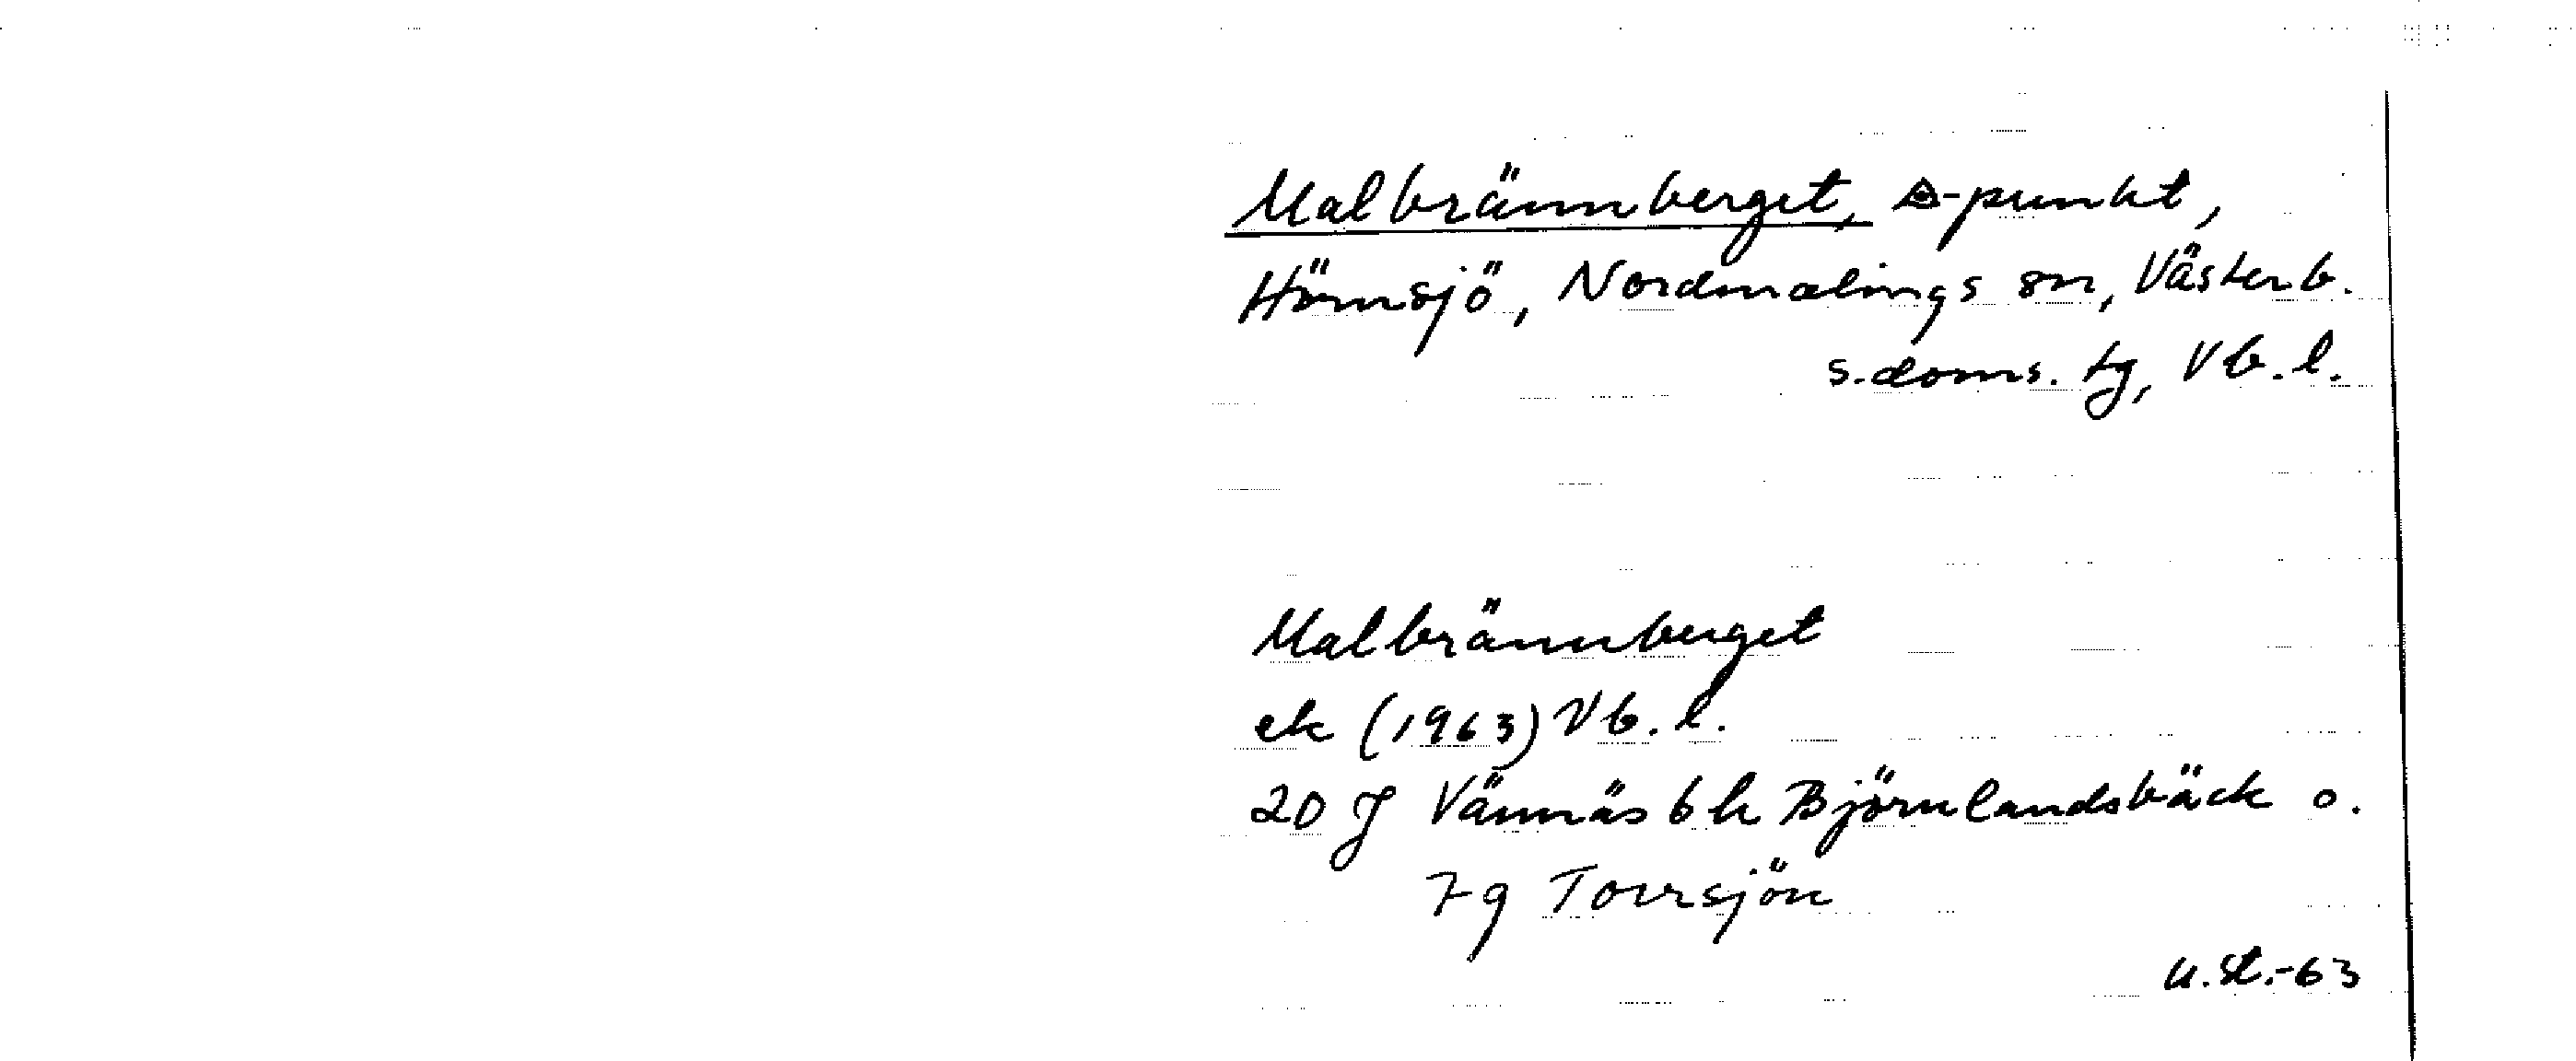 Malbrännberget, △-punkt,
Hömsjö, Nordmalings sn, Västerb.
s. doms. tg, Vb. l.
Malbrännberget
ek (1963) Vb. l.
20 J Vännäs bk Björnlandsbäck o.
7g Torrsjön
u. St.-63